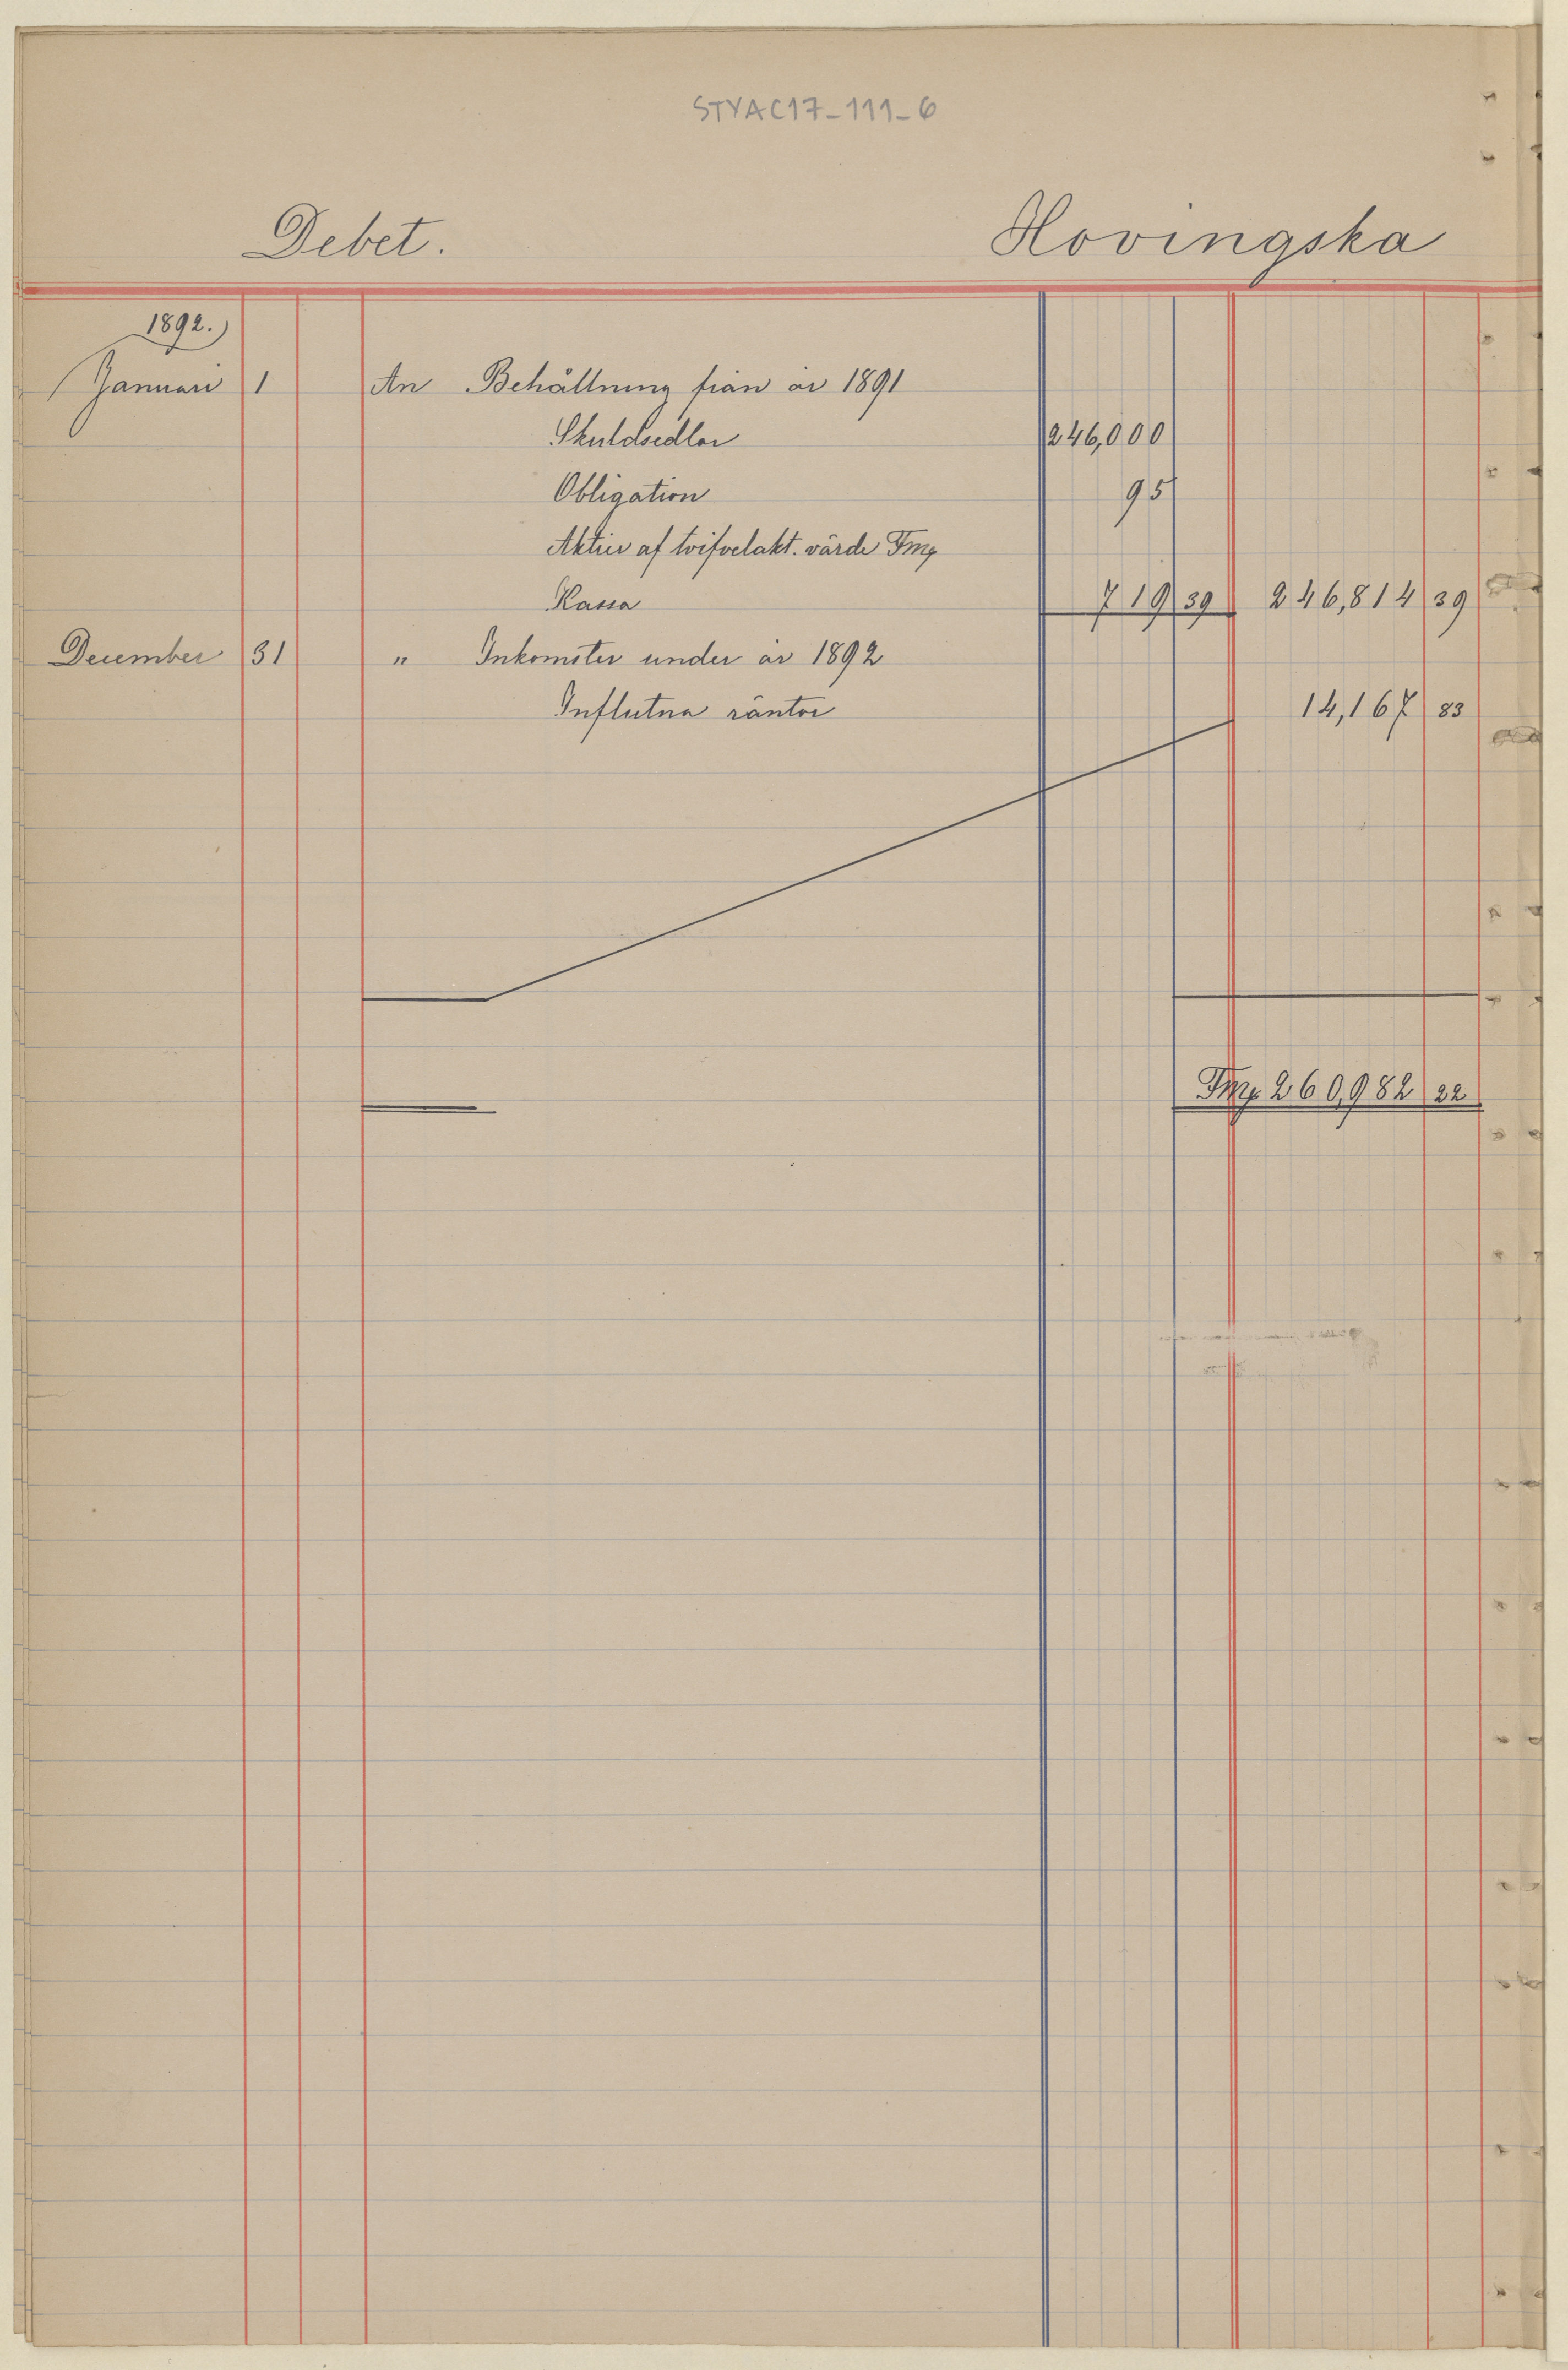 STYAC17-111-6
Debet. Hovingska
1892.
Januari 1 An Behållning från år 1891
Skuldsedlar 246,000
Obligation 95
Aktier af tvifvelakt. värde Fmg
Kassa 719 39 246,814 39
December 31 " Inkomster under år 1892
Influtna räntor 14,167 83
Fmg 260,982 22